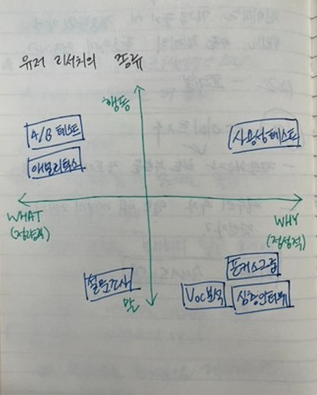 유저 리서치의 종류
행동
A/B 테스트
사용성테스트
애널리틱스
WHAT
(정량적)
WHY
(정성적)
포커스그룹
설문조사
VOC분석
심층인터뷰
말